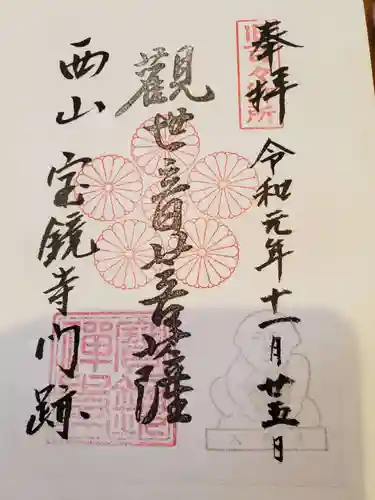 奉拝
令和元年十一月廿五日
觀世音菩薩
西山
宝鏡寺門跡